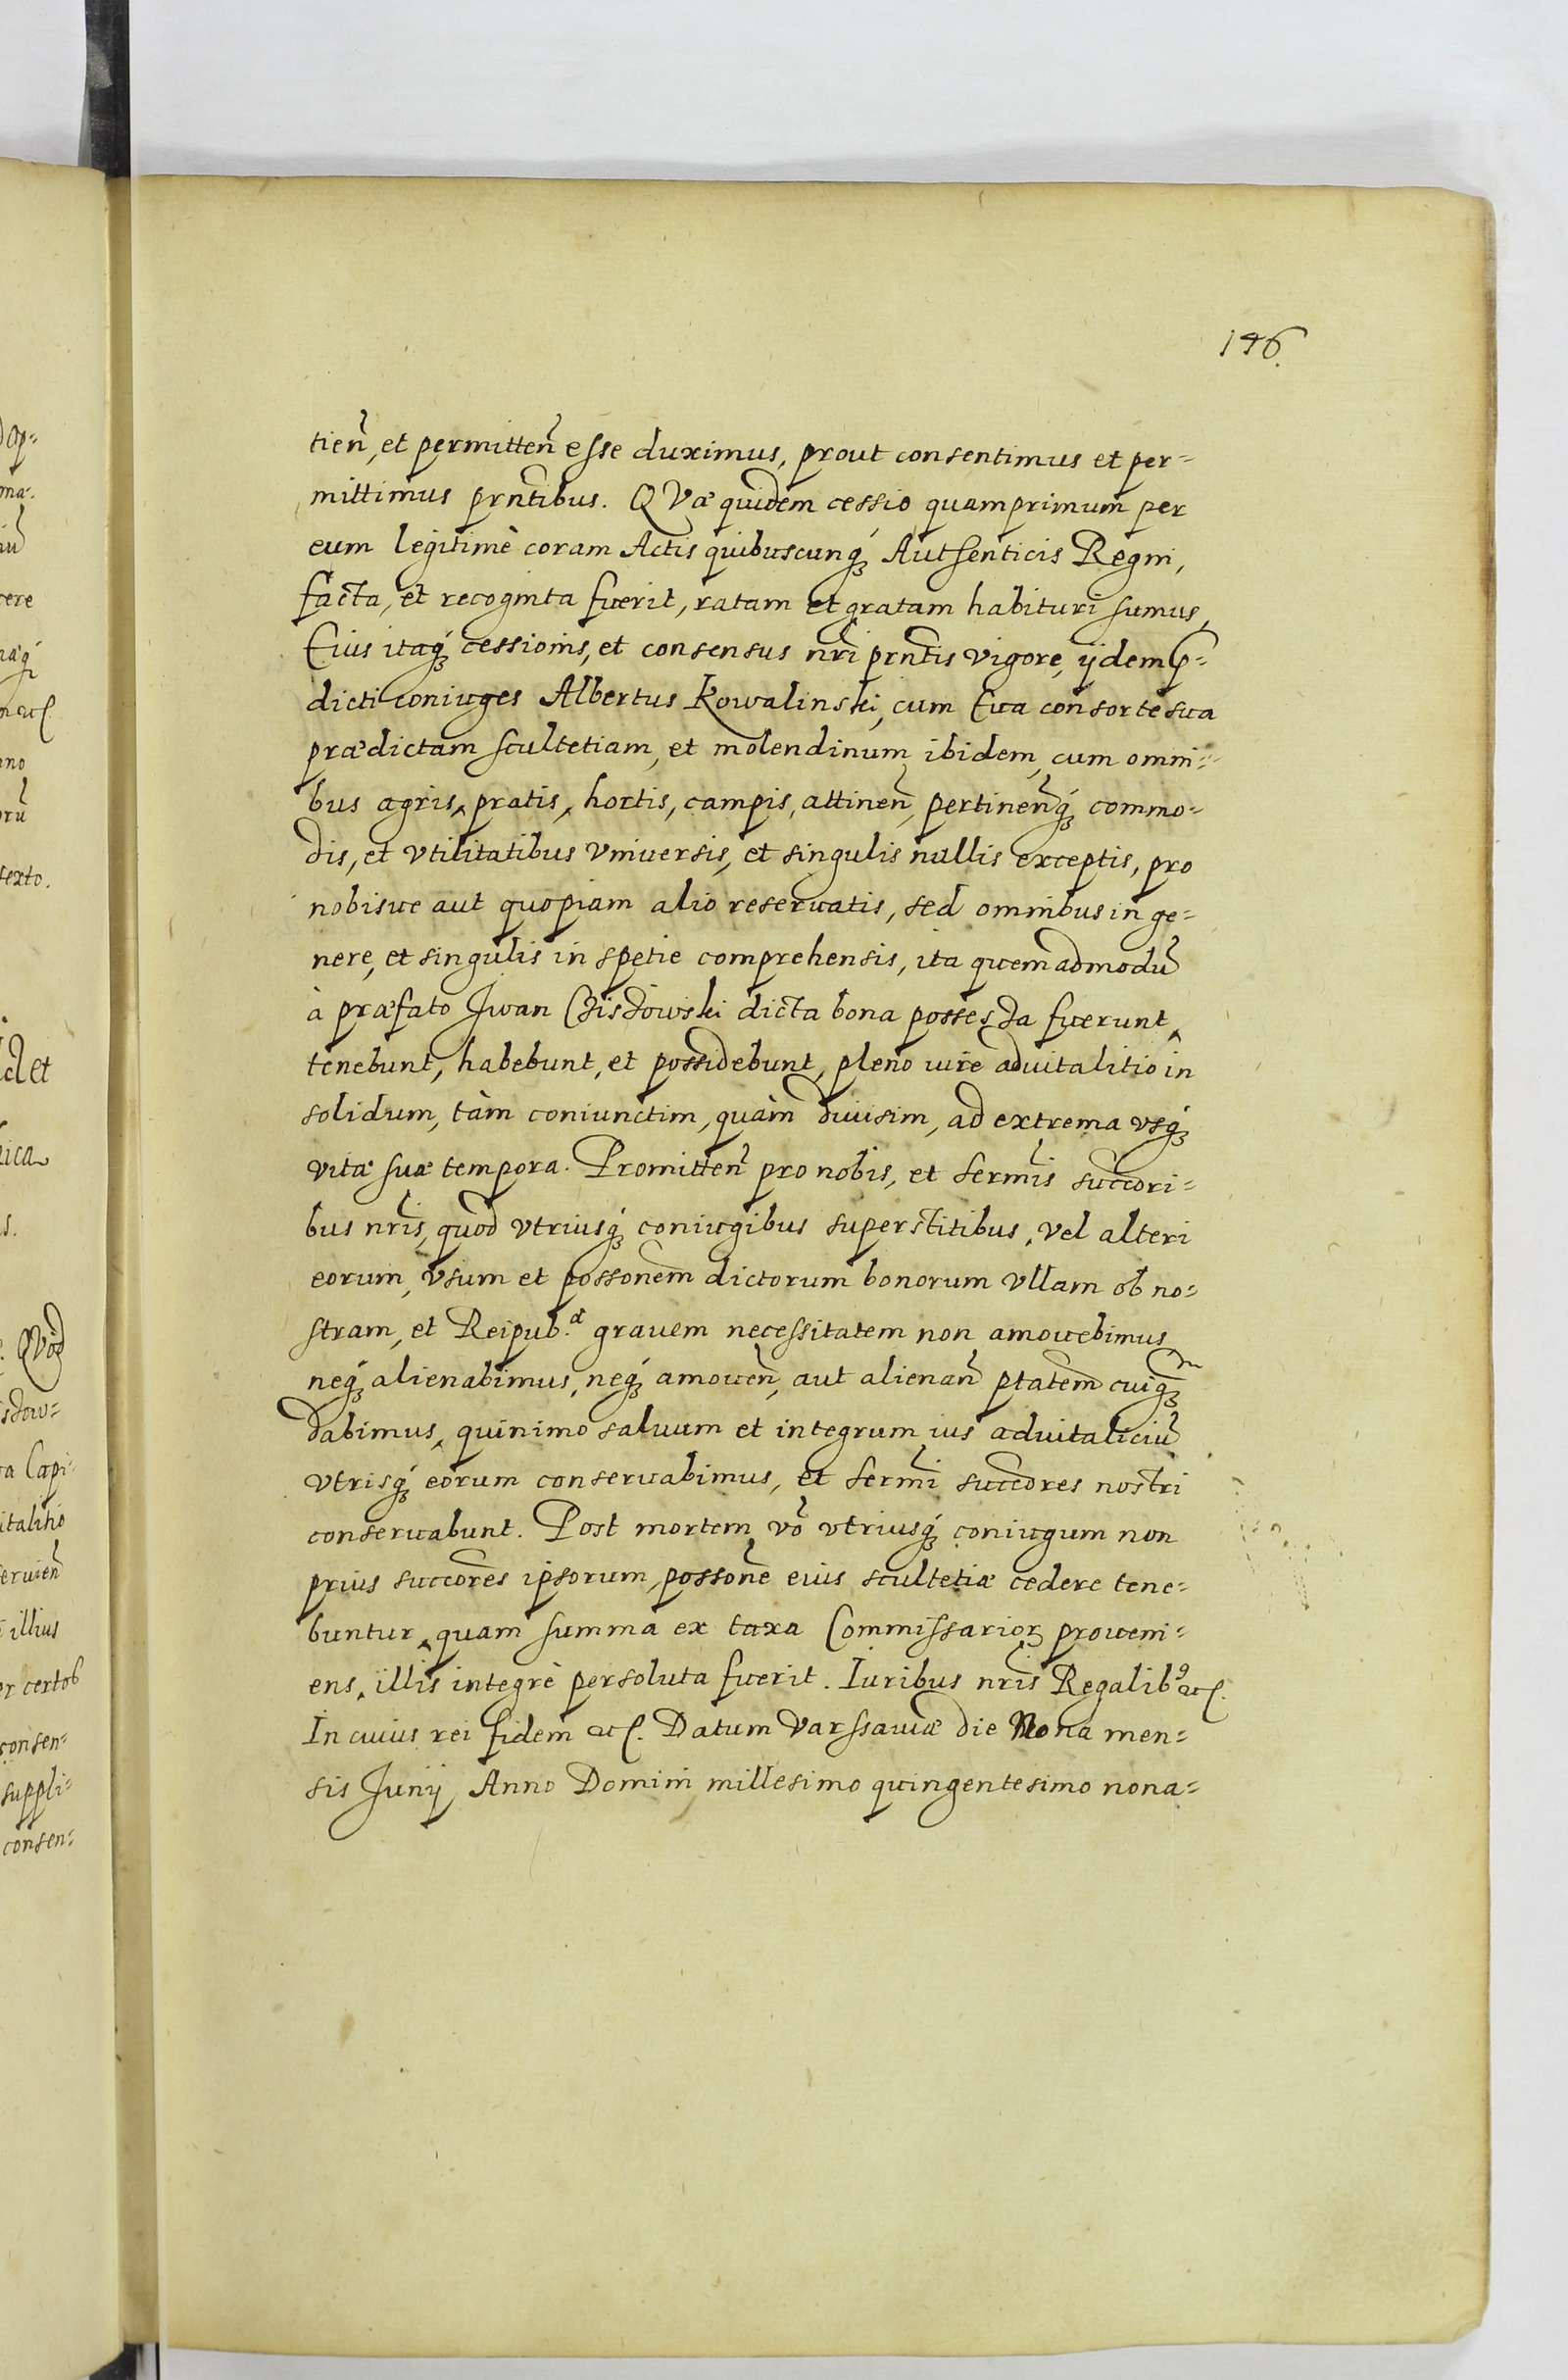 146.
tien̄, et permitten̄ esse duximus, prout consentimus et per=
mittimus prn̄tibus. QVæ quidem cessio quamprimum per
eum legitimè coram Actis quibuscunq́ꝫ Authenticis Regni,
facta, et recognita fuerit, ratam et gratam habituri sumus,
Eius itaq́ꝫ cessionis, et consensus nr̄i prn̄tis vigore, ijdem p̄=
dicti coniuges Albertus Kowalinski, cum Eua consorte sua
prædictam scultetiam, et molendinum ibidem, cum omni=
bus agris, pratis, hortis, campis, attinen̄, pertinen̄q́ꝫ commo=
dis, et vtilitatibus vniuersis, et singulis nullis exceptis, pro
nobisue aut quopiam alio reseruatis, sed omnibus in ge=
nere, et singulis in spetie comprehensis, ita quemadmodū
à præfato Iwan Czisdowski dicta bona possessa fuerunt,
tenebunt, habebunt, et possidebunt, pleno iure aduitalitio in
solidum, tàm coniunctim, quàm diuisim, ad extrema vsq́ꝫ
vitæ suæ tempora. Promitten̄ pro nobis, et Serm̄is succori=
bus nr̄is, quod vtriusq́ꝫ coniugibus superstitibus, vel alteri
eorum, vsum et possonem dictorum bonorum vllam ob no=
stram, et Reipub.æ grauem necessitatem non amouebimus
neq́ꝫ alienabimus, neq́ꝫ amouen̄, aut alienan̄ ptatem cuiqꝫm
dabimus, quinimo saluum et integrum ius aduitaliciū
vtrisq́ꝫ eorum conseruabimus, et Serm̄i succores nostri
conseruabunt. Post mortem vō vtriusq́ꝫ coniugum non
prius succores ipsorum possonē eius scultetiæ cedere tene=
buntur, quam summa ex taxa Commissarioꝝ proueni=
ens, illis integrè persoluta fuerit. Iuribus nr̄is Regalibꝰ etc.
In cuius rei fidem etc. Datum Varssauiæ die Nona men=
sis Junij Anno Domini millesimo quingentesimo nona=